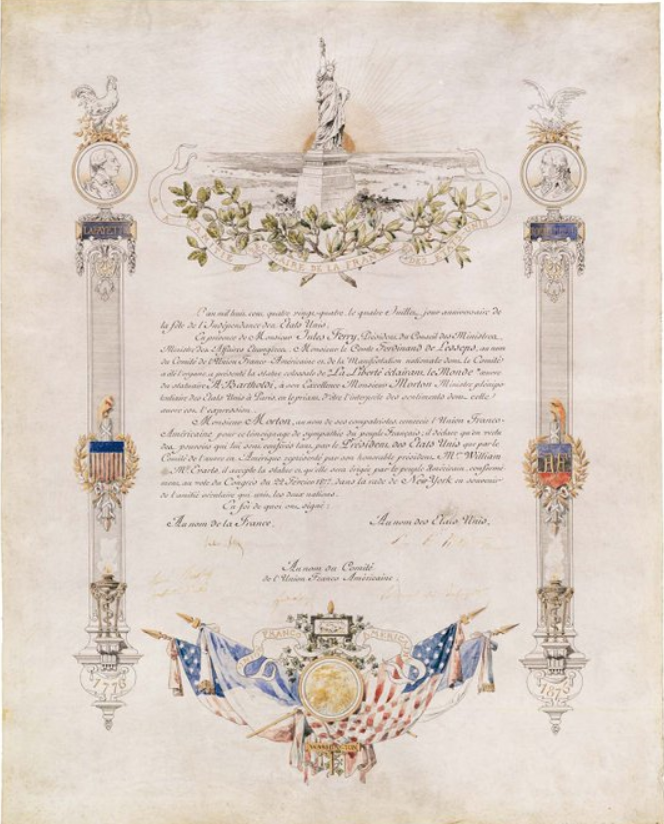 AMITIÉ SÉCULAIRE DE LA FRANCE DES ETATS UNIS
LAFAYETTE
L'an mil huit cent quatre vingt-quatre, le quatre Juillet, jour anniversaire de
la fête de l'Indépendance des Etats Unis.
En présence de Monsieur Jules Ferry, Président du Conseil des Ministres,
Ministre des Affaires Etrangères, Monsieur le Comte Ferdinand de Lesseps, au nom
du Comité de l'Union Franco-Américaine et de la Manifestation nationale dont ce Comité
a été l'organe, a présenté la statue colossale de "La Liberté éclairant le Monde" œuvre
du statuaire A. Bartholdi, à son Excellence Monsieur Morton Ministre plénipo-
tentiaire des Etats Unis à Paris, en le priant d'être l'interprète des sentiments dont cette
œuvre est l'expression.
Monsieur Morton, au nom de ses compatriotes, remercie l'Union Franco-
Américaine pour ce témoignage de sympathie du peuple Français; il déclare qu'en vertu
des pouvoirs qui lui sont conférés tant par le Président des Etats Unis que par le
Comité de l'œuvre en Amérique représenté par son honorable président, Mr. William
M. Evarts, il accepte la statue et qu'elle sera érigée par le peuple Américain, conformé-
ment au vote du Congrès du 22 Février 1877, dans la rade de New York en souvenir
de l'amitié séculaire qui unit les deux nations.
En foi de quoi ont signé:
Au nom de la France, Au nom des Etats Unis,
Au nom du Comité
de l'Union Franco Américaine,
UNION FRANCO AMERICAINE
WASHINGTON
1776
1876